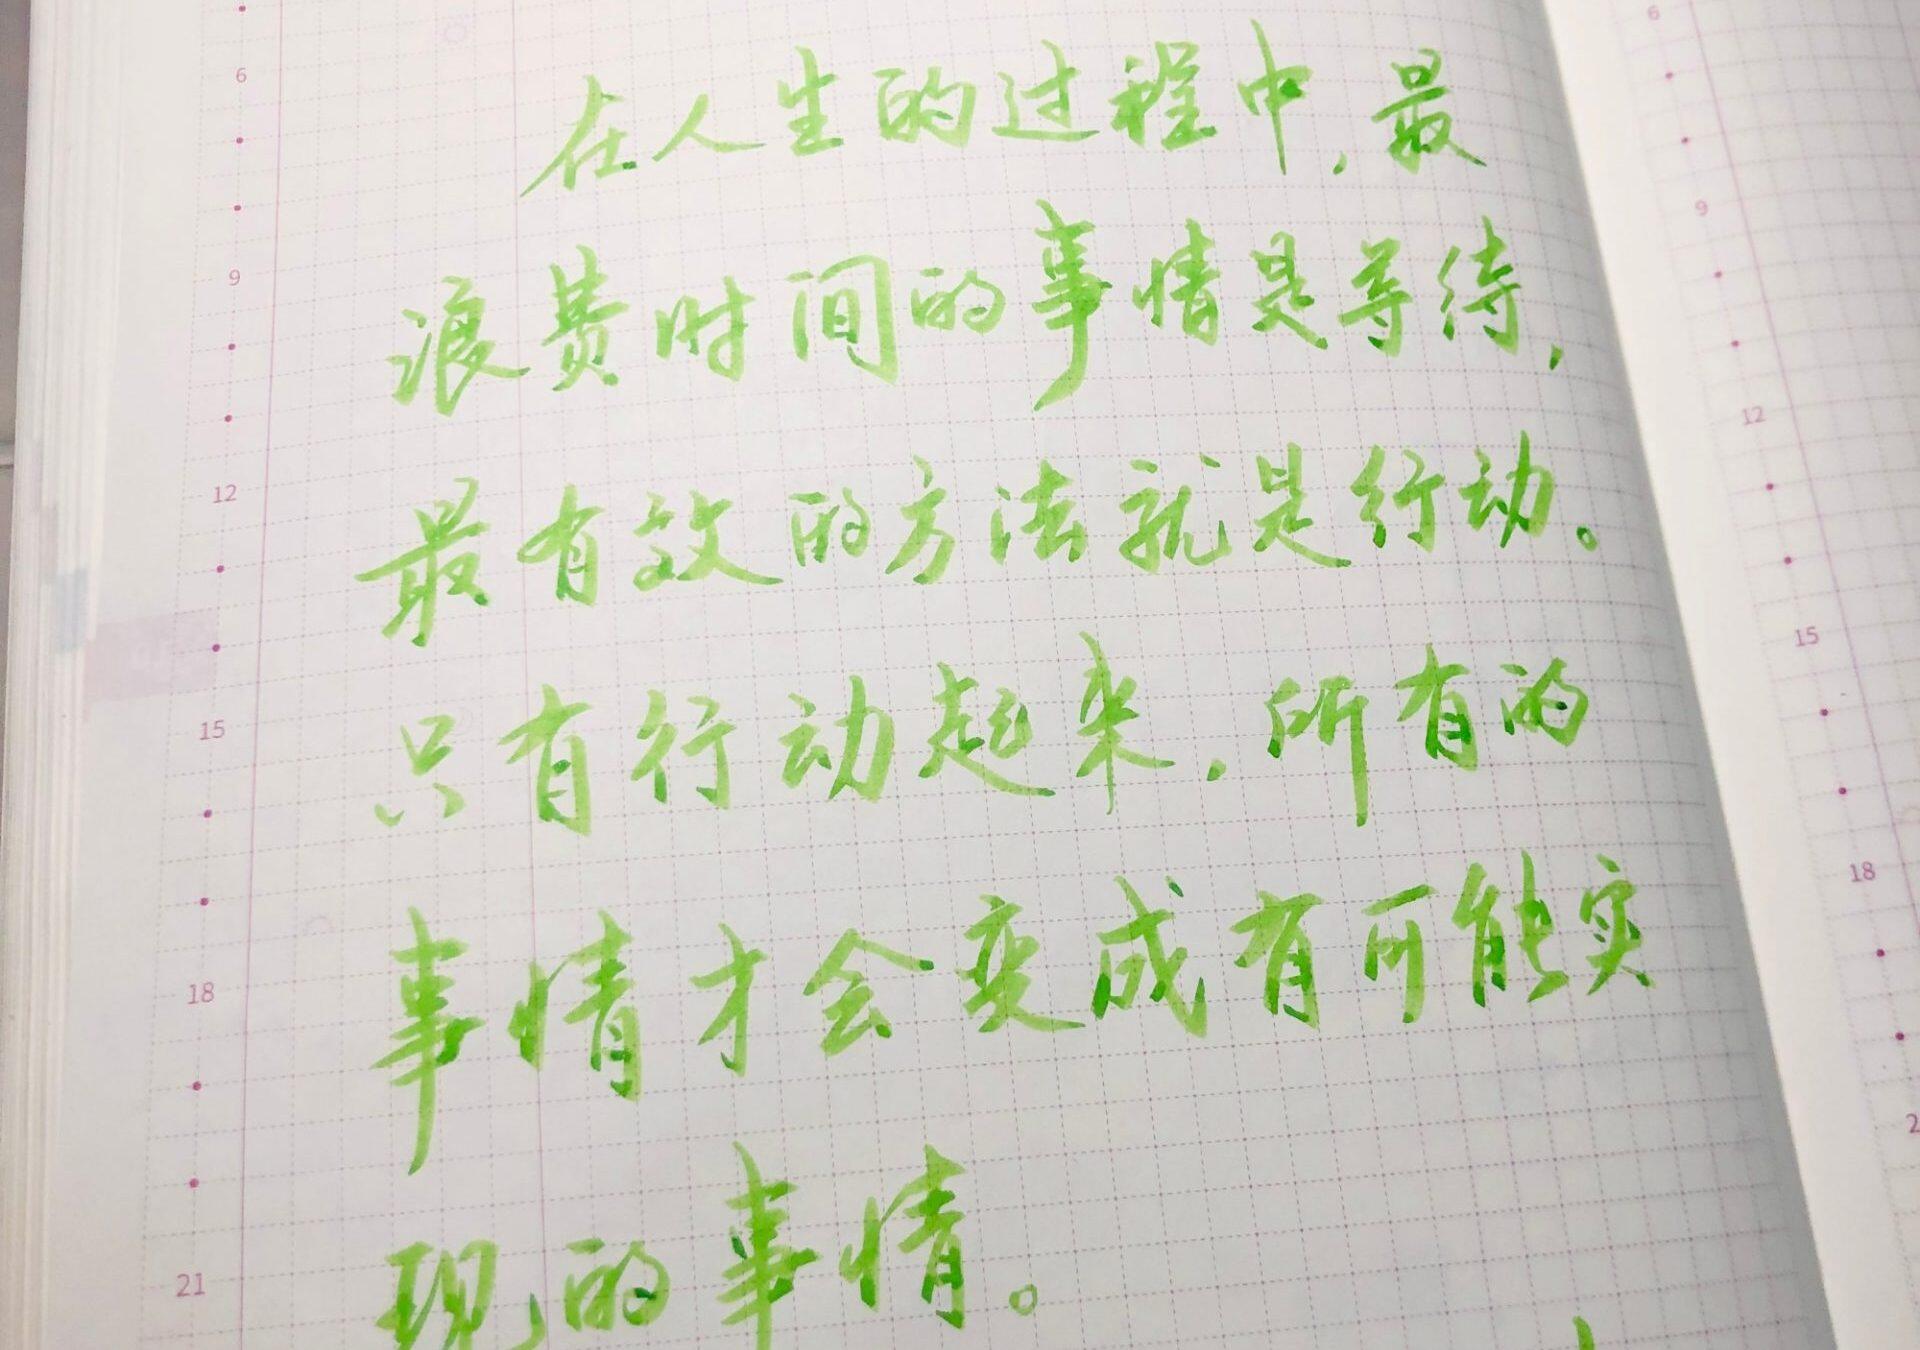 在人生的过程中,最
浪费时间的事情是等待,
最有效的方法就是行动。
只有行动起来,所有的
事情才会变成有可能实
现的事情。
6
9
12
15
18
21
6
9
12
15
18